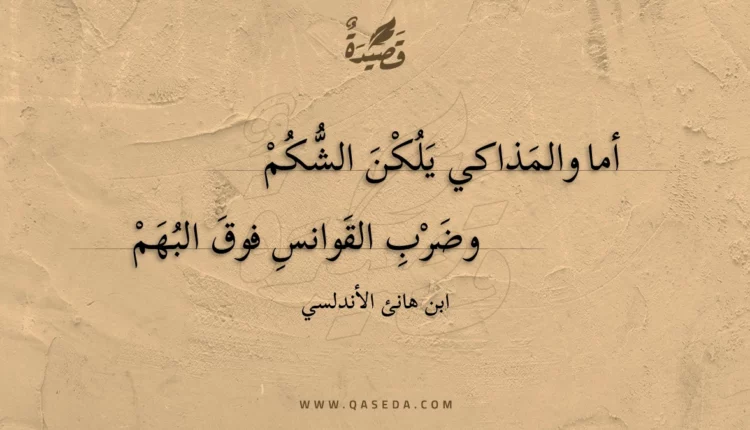 قَصِيْدَةٌ
أما والمَذاكي يَلُكْنَ الشُّكُمْ
وضَرْبِ القَوانسِ فوقَ البُهَمْ
ابن هانئ الأندلسي
WWW.QASEDA.COM